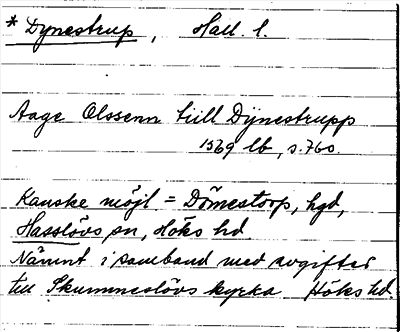 * Dynestrup, Hall. l.
Aage Olssenn till Dÿnestrupp
1569 lb, s.760.
Kanske möjl = Dömestorp, hgd,
Hasslövs sn, Höks hd.
Nämnt i samband med avgifter
till Skummeslövs kyrka Höks hd.